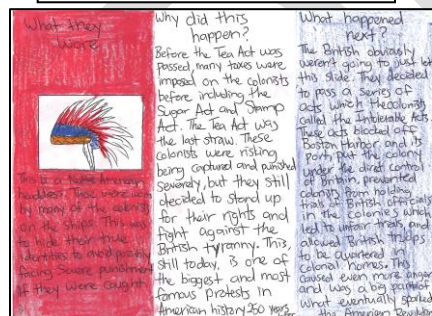 What they
Wore
This is a Native American
headdress. These were worn
by many of the colonists
on the ships. This was
to hide their true
identities to avoid possibly
facing severe punishment
if they were caught.
Why did this
happen?
Before the Tea Act was
passed, many taxes were
imposed on the colonists
before including the
Sugar Act and Stamp
Act. The Tea Act was
the last straw. These
colonists were risking
being captured and punished
severely, but they still
decided to stand up
for their rights and
fight against the
British tyranny. This,
still today, is one of
the biggest and most
famous protests in
American history 250 years
What happened
next?
The British obviously
weren't going to just let
this slide. They decided
to pass a series of
acts which the colonists
called the Intolerable Acts.
These acts blocked off
Boston Harbor and its
Port, put the colony
under the direct control
of Britain, prevented
colonists from holding
trials of British officials
in the colonies which
led to unfair trials, and
allowed British troops
to be quartered in
colonial homes. This
caused even more anger
and was a big part of
what eventually sparked
the American Revolution